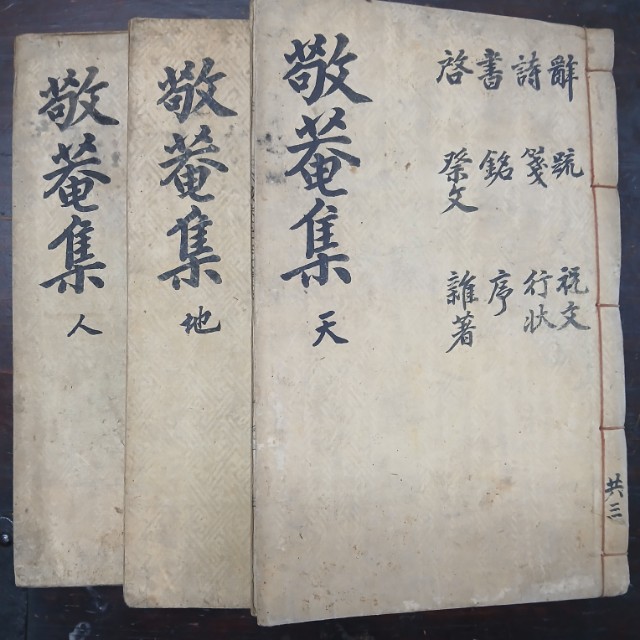 共三
辭 疏 祝文
詩 箋 行狀
書 銘 序
啓 祭文 雜著
敬菴集 天
敬菴集 地
敬菴集 人